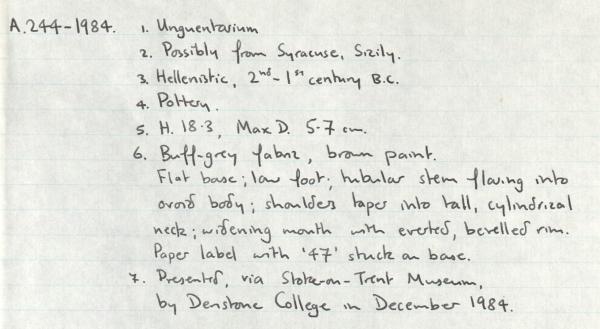 A.244-1984. 1. Unguentarium
2. Possibly from Syracuse, Sicily.
3. Hellenistic, 2nd-1st century B.C.
4. Pottery.
5. H. 18.3, Max D. 5.7 cm.
6. Buff-grey fabric, brown paint.
Flat base; low foot; tubular stem flaring into
ovoid body; shoulders taper into tall, cylindrical
neck; widening mouth with everted, bevelled rim.
Paper label with '47' stuck on base.
7. Presented, via Stoke-on-Trent Museum,
by Denstone College in December 1984.